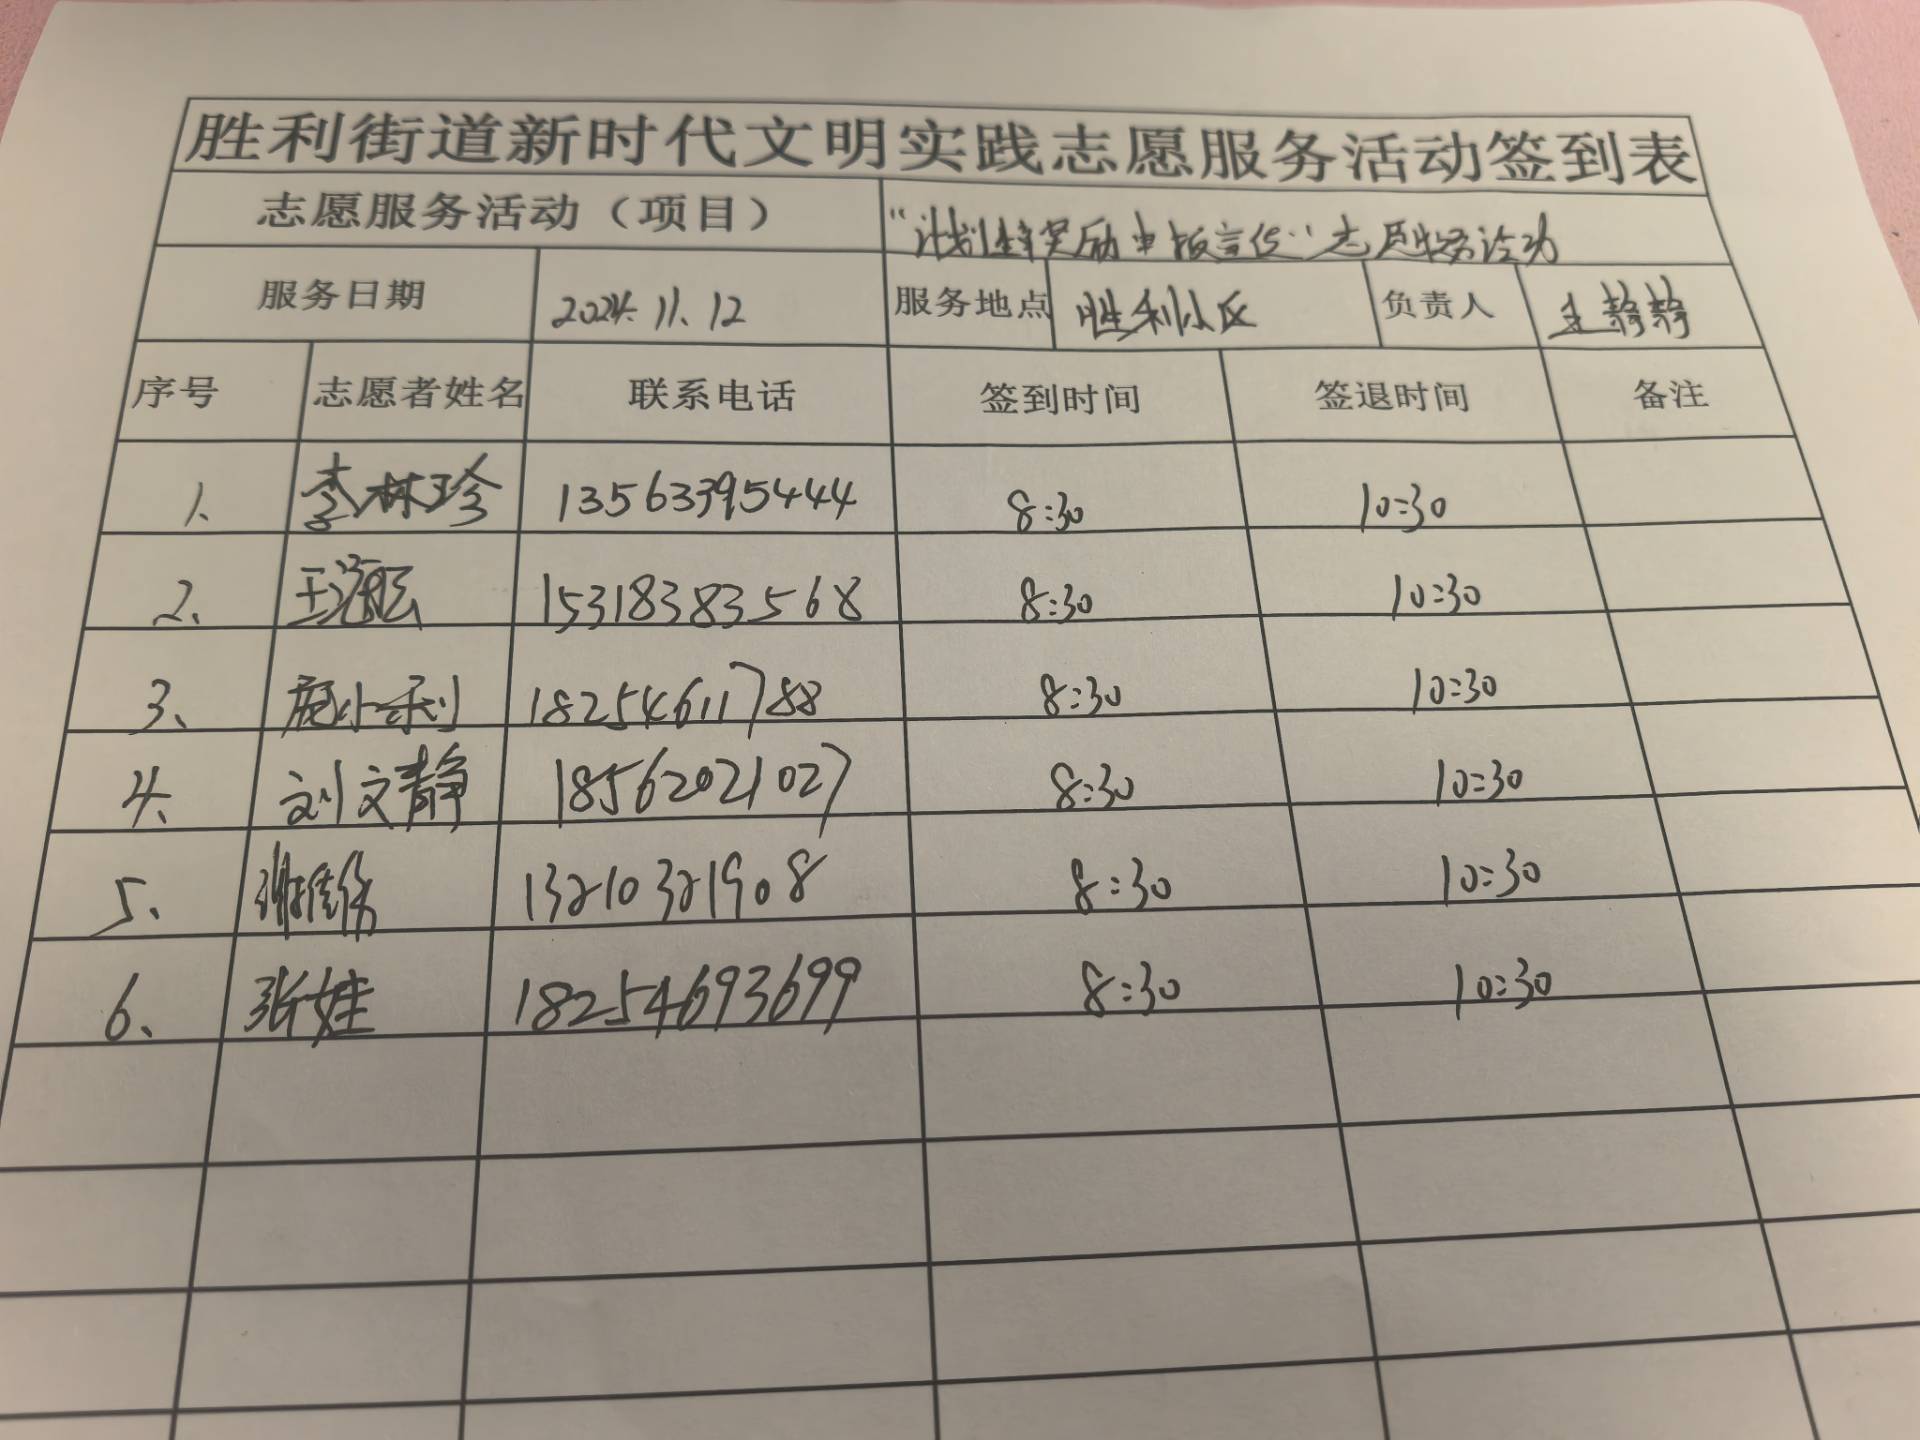 胜利街道新时代文明实践志愿服务活动签到表
志愿服务活动（项目） “计划生育奖励申报宣传”志愿服务活动
服务日期 2024.11.12 服务地点 胜利小区 负责人 王静静
序号 志愿者姓名 联系电话 签到时间 签退时间 备注
1、 李林珍 13563395444 8:30 10:30
2、 15318383568 8:30 10:30
3、 18254611788 8:30 10:30
4、 刘文静 18562021027 8:30 10:30
5、 13210321908 8:30 10:30
6、 张娃 18254693699 8:30 10:30